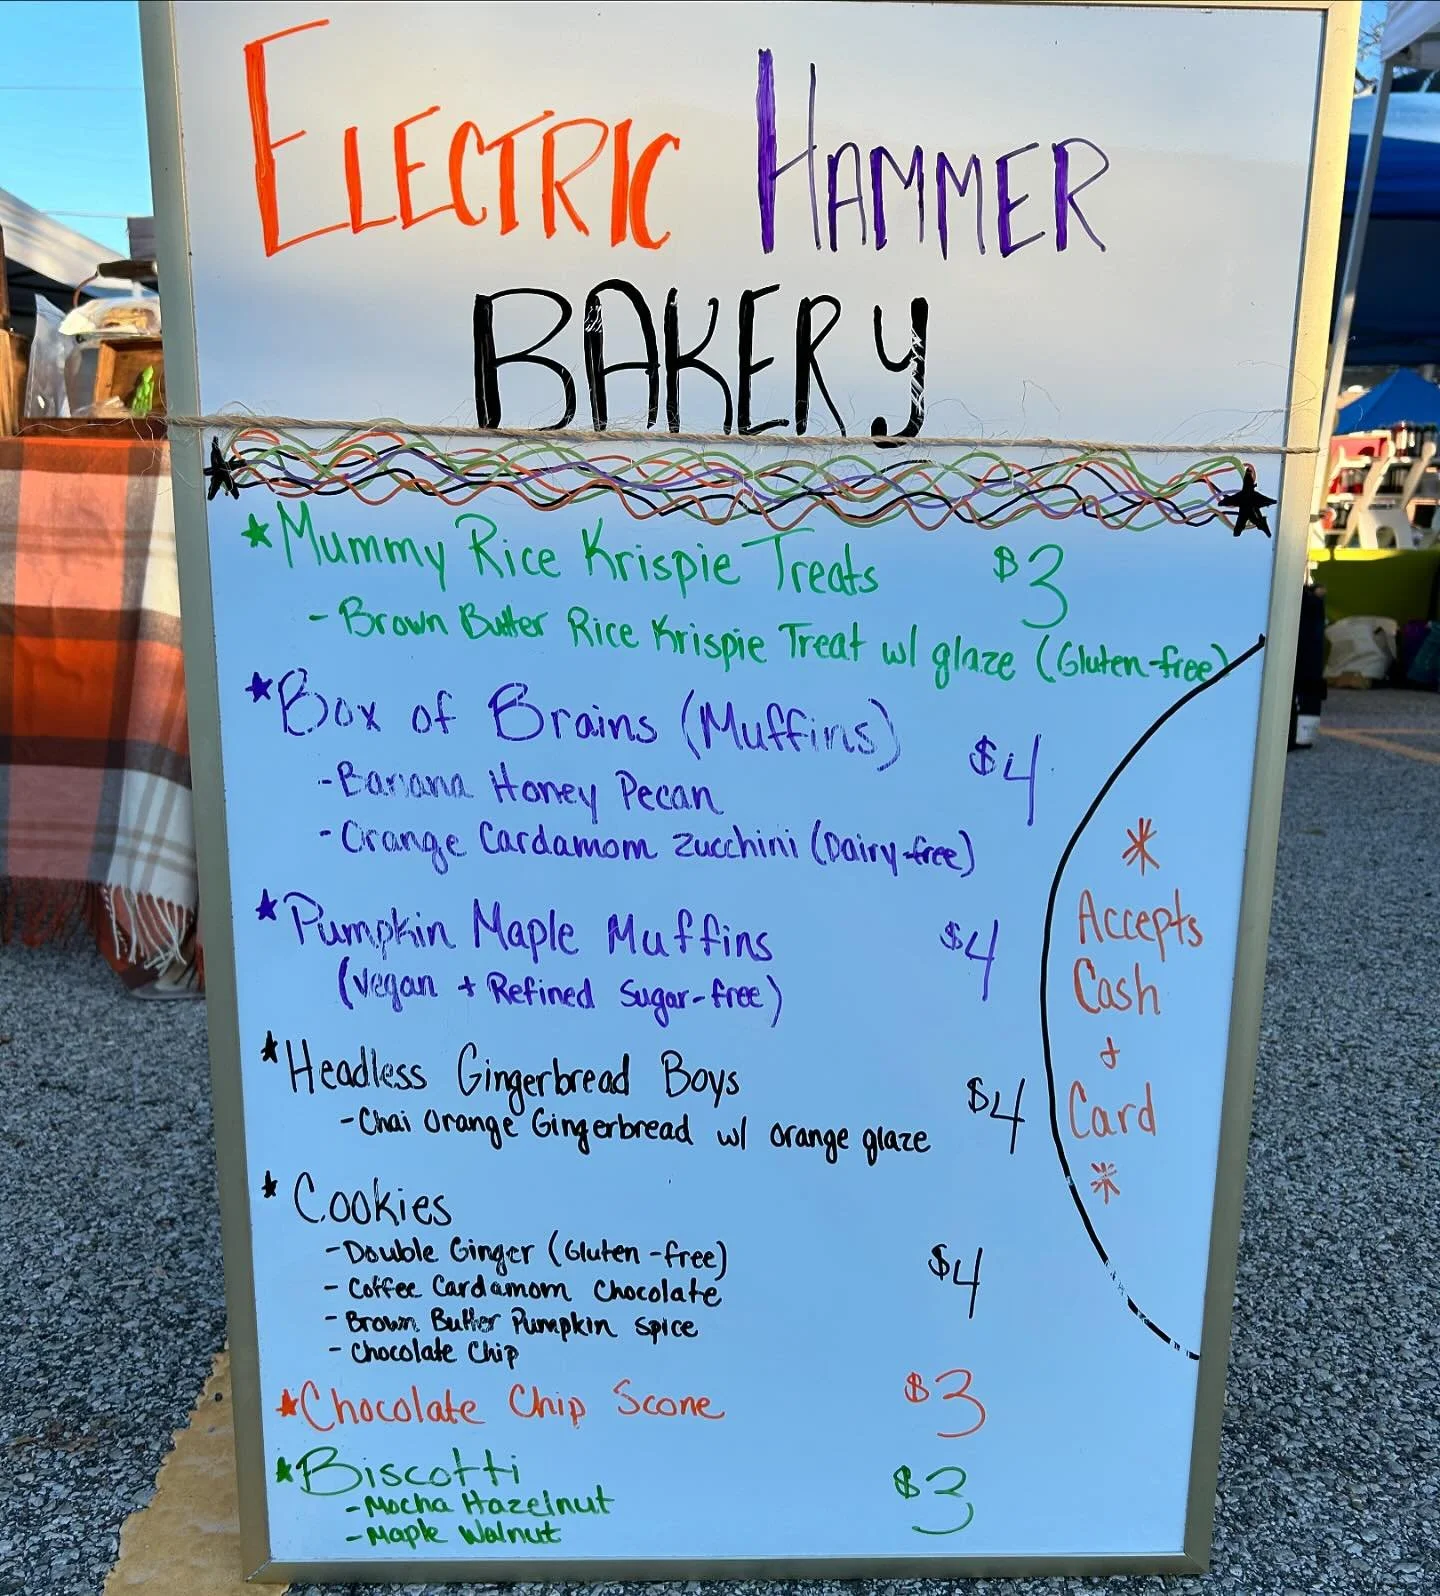 ELECTRIC HAMMER
BAKERY
★ Mummy Rice Krispie Treats $3
- Brown Butter Rice Krispie Treat w/ glaze (Gluten-free)
★ Box of Brains (Muffins) $4
- Banana Honey Pecan
- Orange Cardamom Zucchini (Dairy-free)
★ Pumpkin Maple Muffins $4
(Vegan + Refined Sugar-free)
★ Headless Gingerbread Boys $4
- Chai Orange Gingerbread w/ orange glaze
★ Cookies $4
- Double Ginger (Gluten-free)
- Coffee Cardamom Chocolate
- Brown Butter Pumpkin Spice
- Chocolate Chip
★ Chocolate Chip Scone $3
★ Biscotti $3
- Mocha Hazelnut
- Maple Walnut
*
Accepts
Cash
+
Card
*